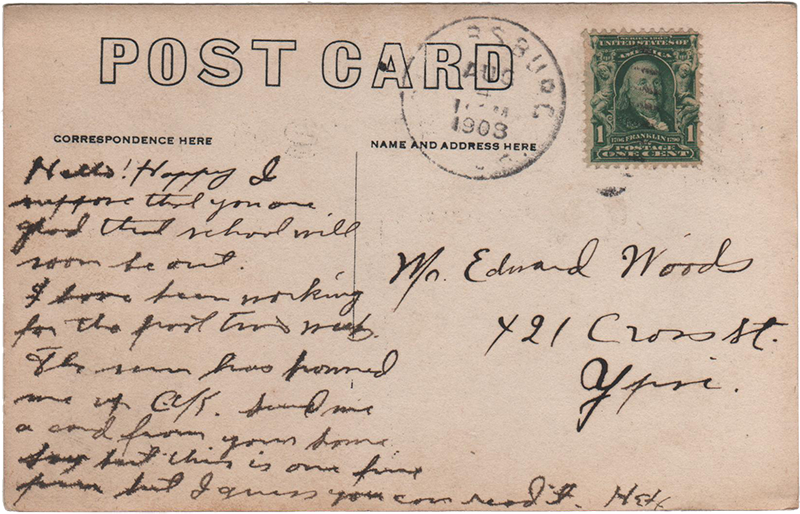 POST CARD
CORRESPONDENCE HERE
NAME AND ADDRESS HERE
RSBURG
AUG
1908
SERIES 1902
UNITED STATES OF
AMERICA
1
1
FRANKLIN
POSTAGE
ONE CENT
Hello! Happy I
suppose that you are
glad that school will
soon be out.
I have been working
for the past two weeks.
The sun has
me up O.K. Send me
a card from your home
but this is one fine
but I guess you can read it.
Mr. Edward Woods
421 Cross St.
Ypsi.